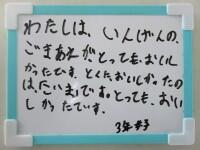 わたしは、いんげんの、
ごまあえが、とっても、おいし
かったです。とくに、おいしかったの
は、たいまです。とっても、おい
しかったです。
3年